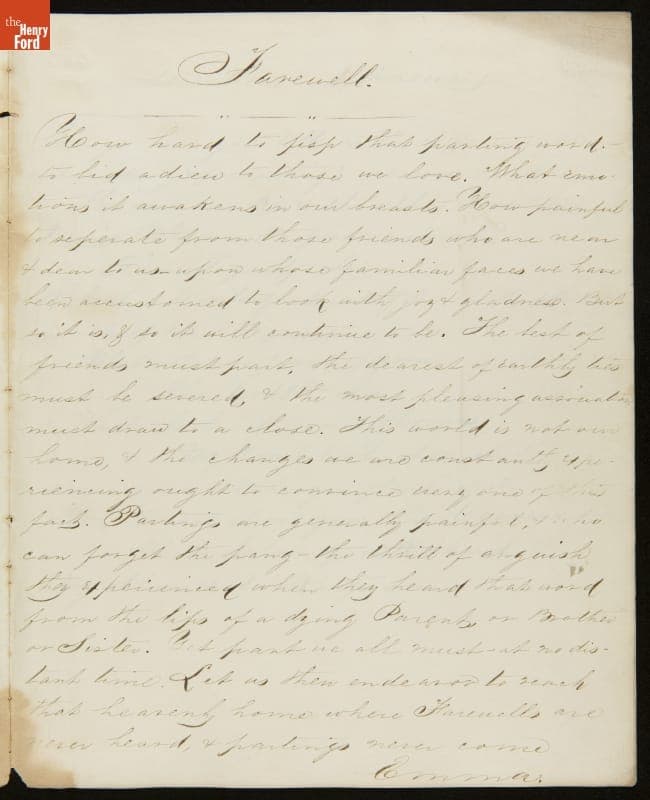 the
Henry
Ford
Farewell.
How hard to lisp that parting word.-
to bid adieu to those we love. What emo-
tions it awakens in our breasts. How painful
to seperate from those friends who are near
& dear to us - upon whose familiar faces we have
been accustomed to look with joy & gladness. But
so it is, & so it will continue to be. The best of
friends must part, the dearest of earthly ties
must be severed, & the most pleasing association
must draw to a close. This world is not our
home, & the changes we are constantly expe-
riencing ought to convince every one of this
fact. Partings are generally painful, & who
can forget the pang - the thrill of anguish
they experienced when they heard that word
from the lips of a dying Parent, or Brother
or Sister. Yet part we all must - at no dis-
tant time. Let us then endeavor to reach
that heavenly home where Farewells are
never heard, & partings never come
Emma.